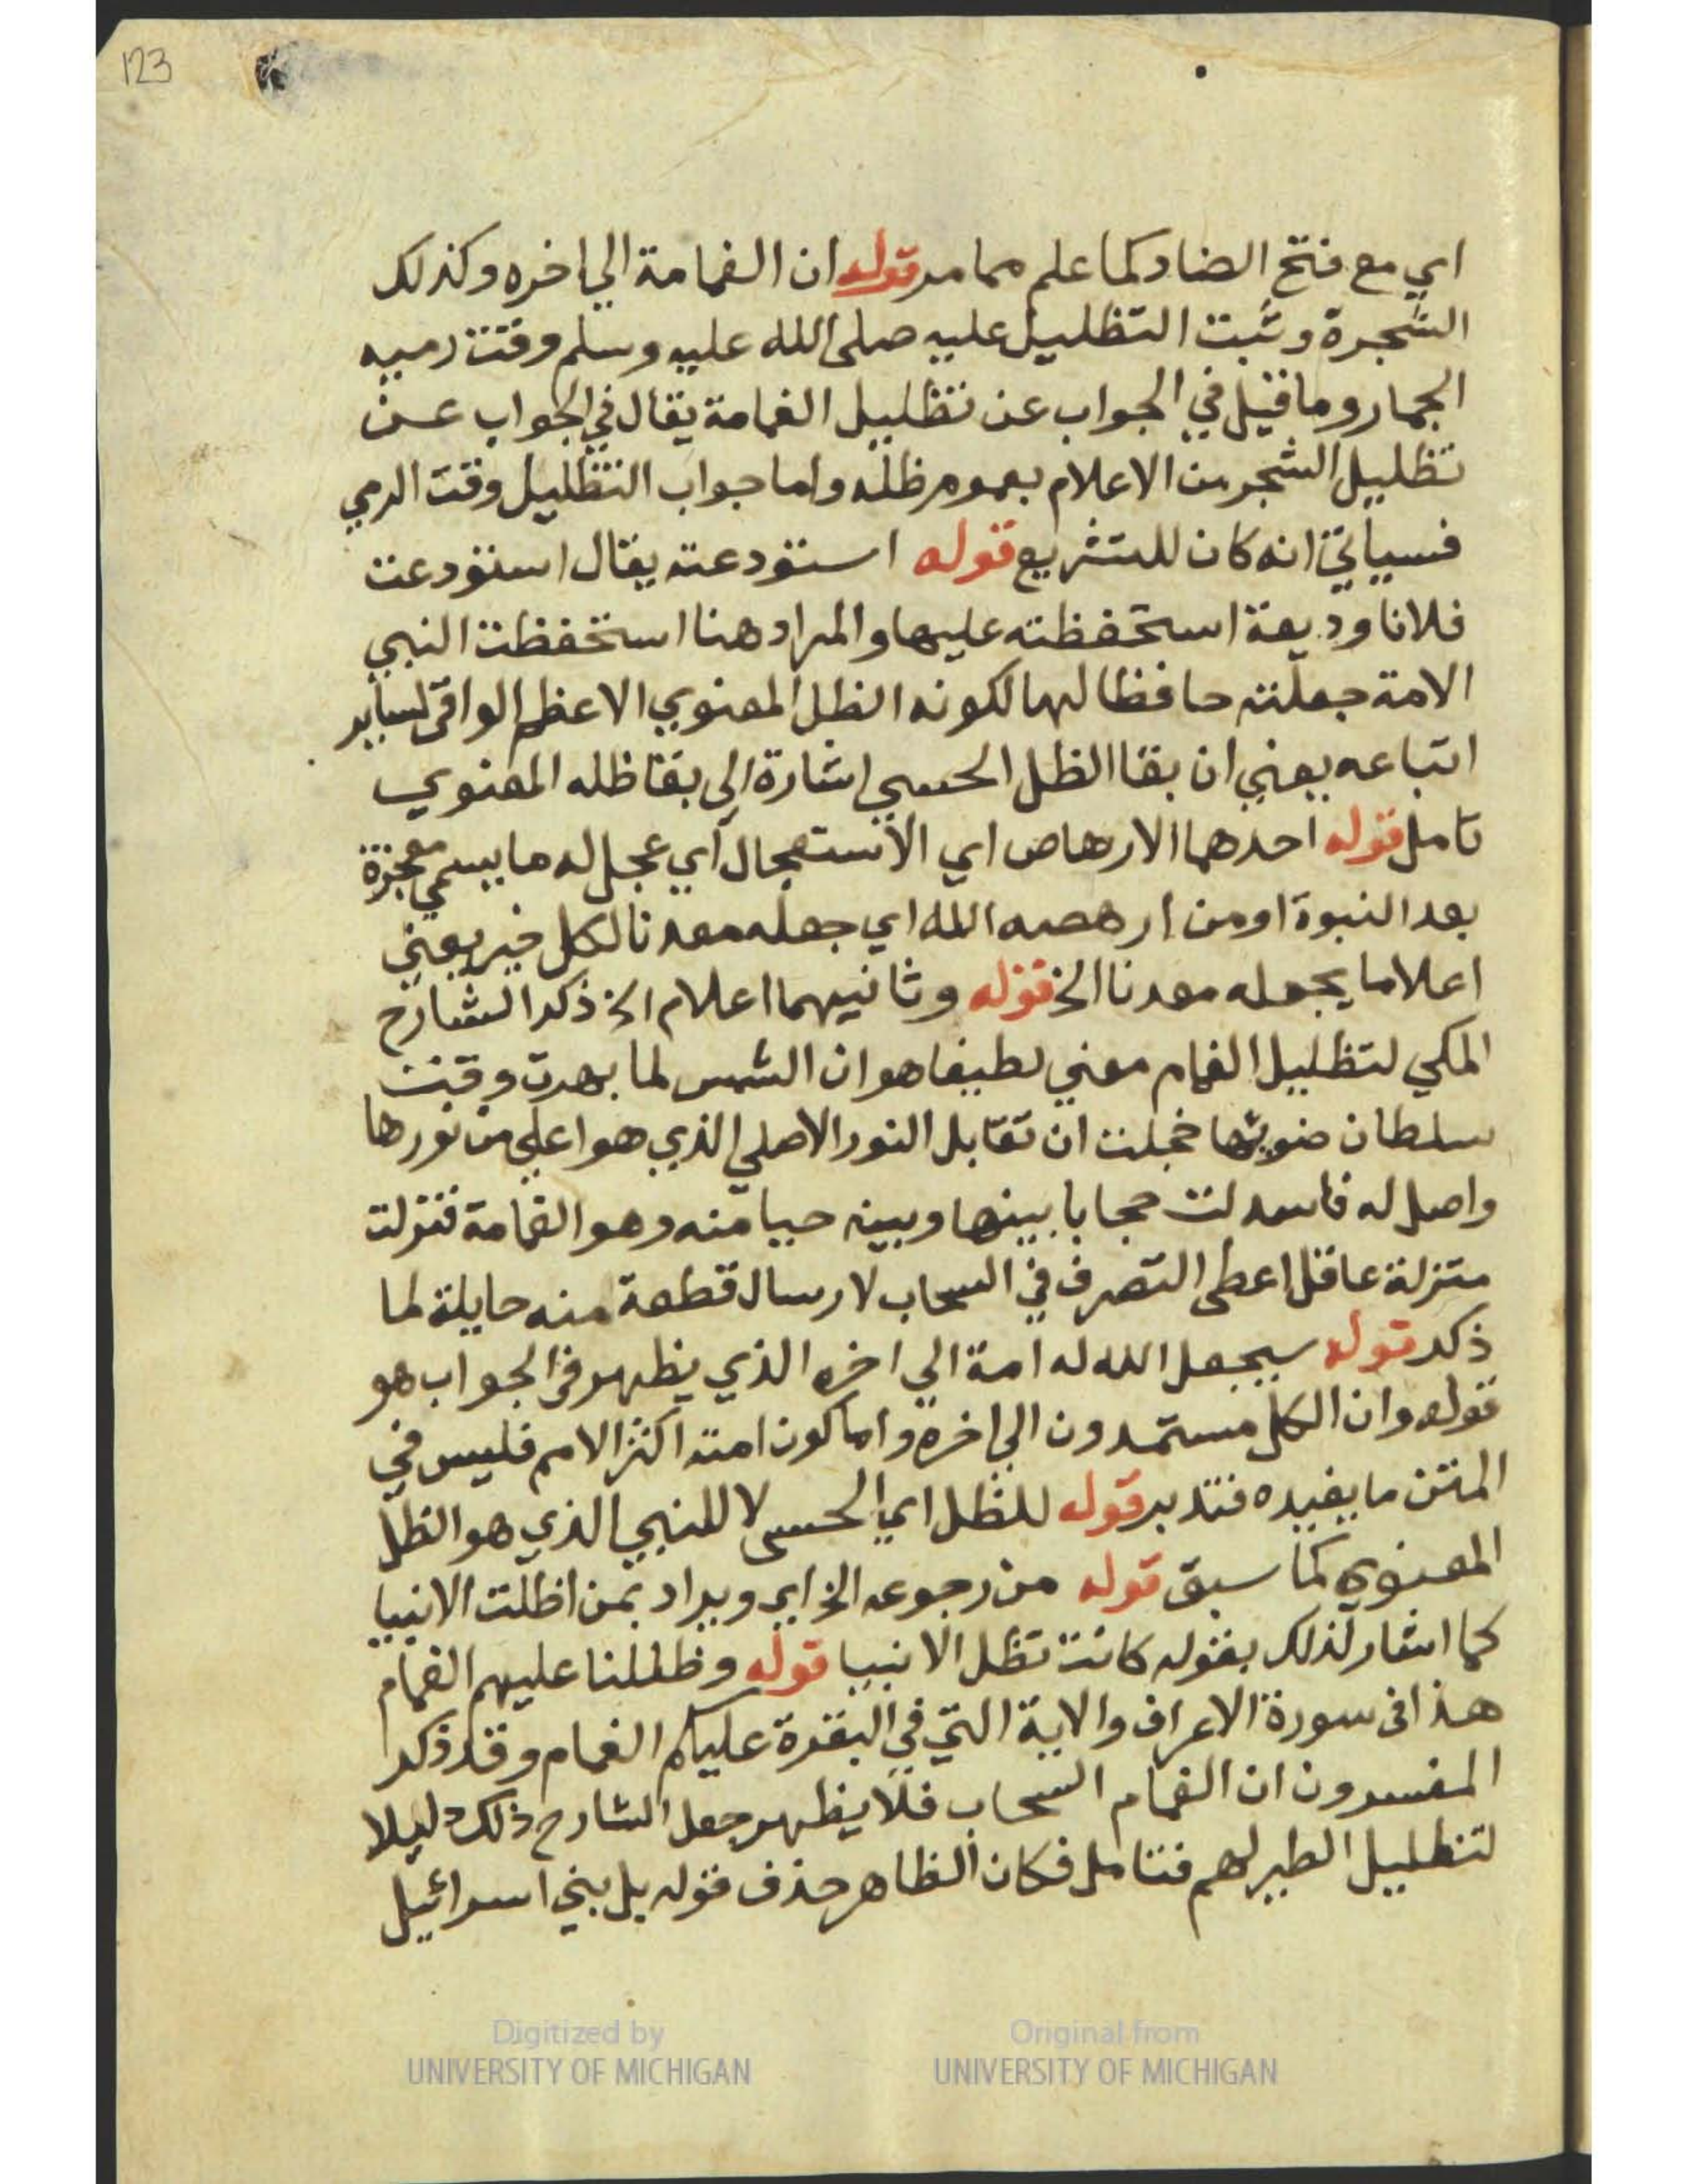 123
اي مع فتح الضاد كما علم مما مر قوله ان الغمامة الي اخره وكذلك
الشجرة وثبت التظليل عليه صلى الله عليه وسلم وقت رميه
الجمار وما قيل في الجواب عن تظليل الغمامة يقال في الجواب عن
تظليل الشجر من الاعلام بعموم ظله واما جواب التظليل وقت الرمي
فسياتي انه كان للتشريع قوله استودعته يقال استودعت
فلانا وديعة استحفظته عليها والمراد هنا استحفظت النبي
الامة جعلته حافظا لها لكونه الظل المعنوي الاعظم الواقي لساير
اتباعه يعني ان بقا الظل الحسي اشارة الي بقا ظله المعنوي
تامل قوله احدهما الارهاص اي الاستعجال اي عجل له ما يسمي معجزة
بعد النبوة او من ارهصه الله اي جعله معدنا لكل خير يعني
اعلاما يجعله معدنا الخ قوله وثانيهما اعلام الخ ذكر الشارح
المكي لتظليل الغمام معني لطيفا هو ان الشمس لما بهرت وقت
سلطان ضوئها خجلت ان تقابل النور الاصلي الذي هو اعلي من نورها
واصل له فاسدلت حجابا بينها وبينه حيا منه وهو الغمامة فنزلت
منزلة عاقل اعطى التصرف في السحاب لارسال قطعة منه حايلة لما
ذكر قوله سيجعل الله له امة الي اخره الذي يظهر في الجواب هو
قوله وان الكل مستمدون الي اخره واما كون امته اكثر الامم فليس في
المتن ما يفيده فتدبر قوله للظل اي الحسي لا للنبي الذي هو الظل
المعنوي كما سبق قوله من رجوعه الخ اي ويراد بمن اظلت الانبيا
كما اشار لذلك بقوله كانت تظل الانبيا قوله وظللنا عليهم الغمام
هذا في سورة الاعراف والاية التي في البقرة عليكم الغمام وقد ذكر
المفسرون ان الغمام السحاب فلا يظهر جعل الشارح ذلك دليلا
لتظليل الطير لهم فتامل فكان الظاهر حذف قوله بل بني اسرائيل
Digitized by UNIVERSITY OF MICHIGAN
Original from UNIVERSITY OF MICHIGAN